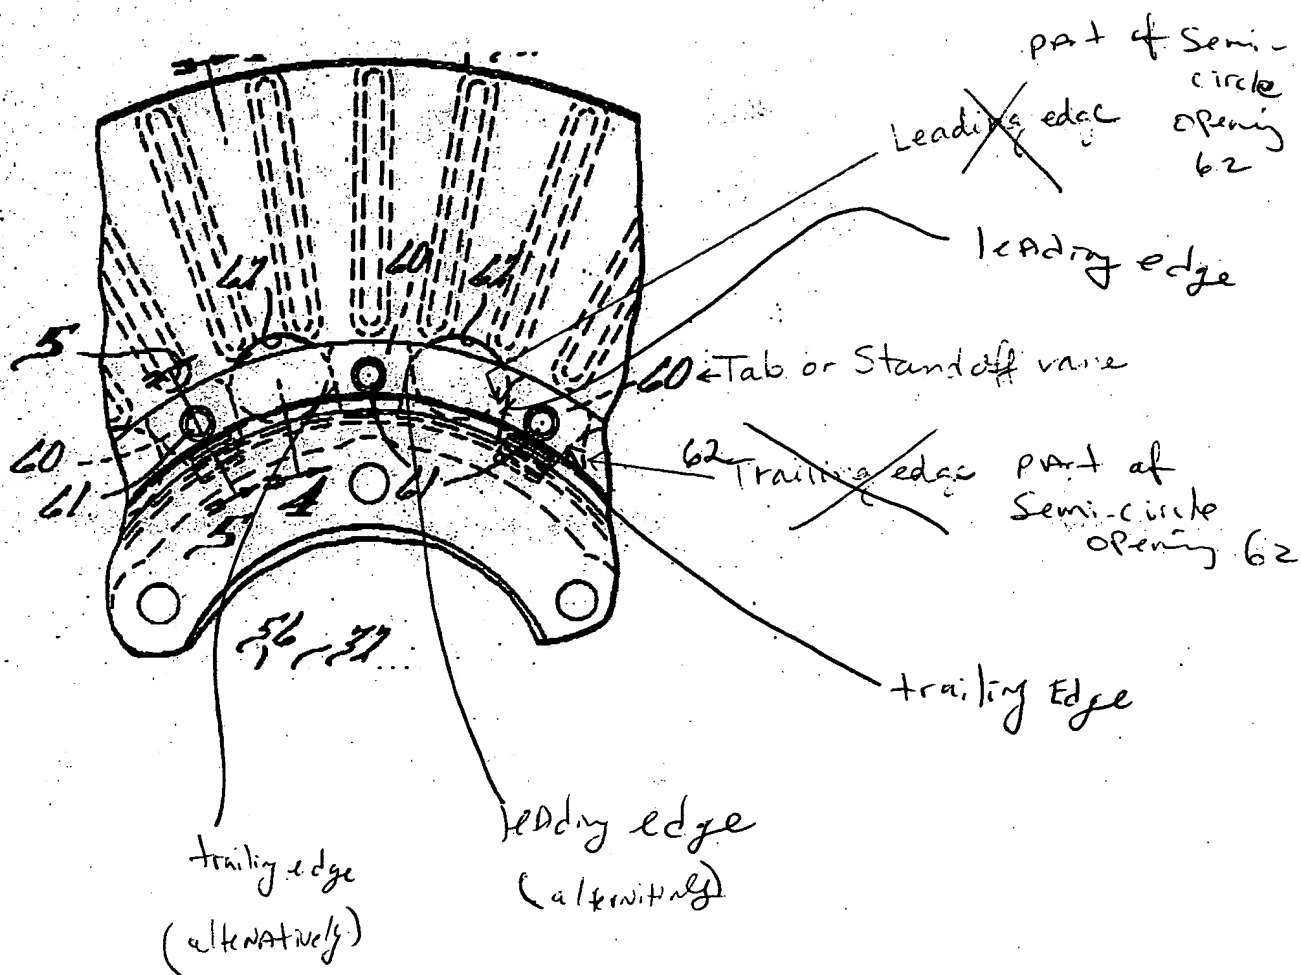 part of Semi-
circle
opening
62
Leading edge
leading edge
62
60
62
5
60 Tab or Standoff vane
60
61
5
4
61
62 Trailing edge
part of
Semi-circle
opening 62
56 37
trailing Edge
leading edge
trailing edge
(alternatively)